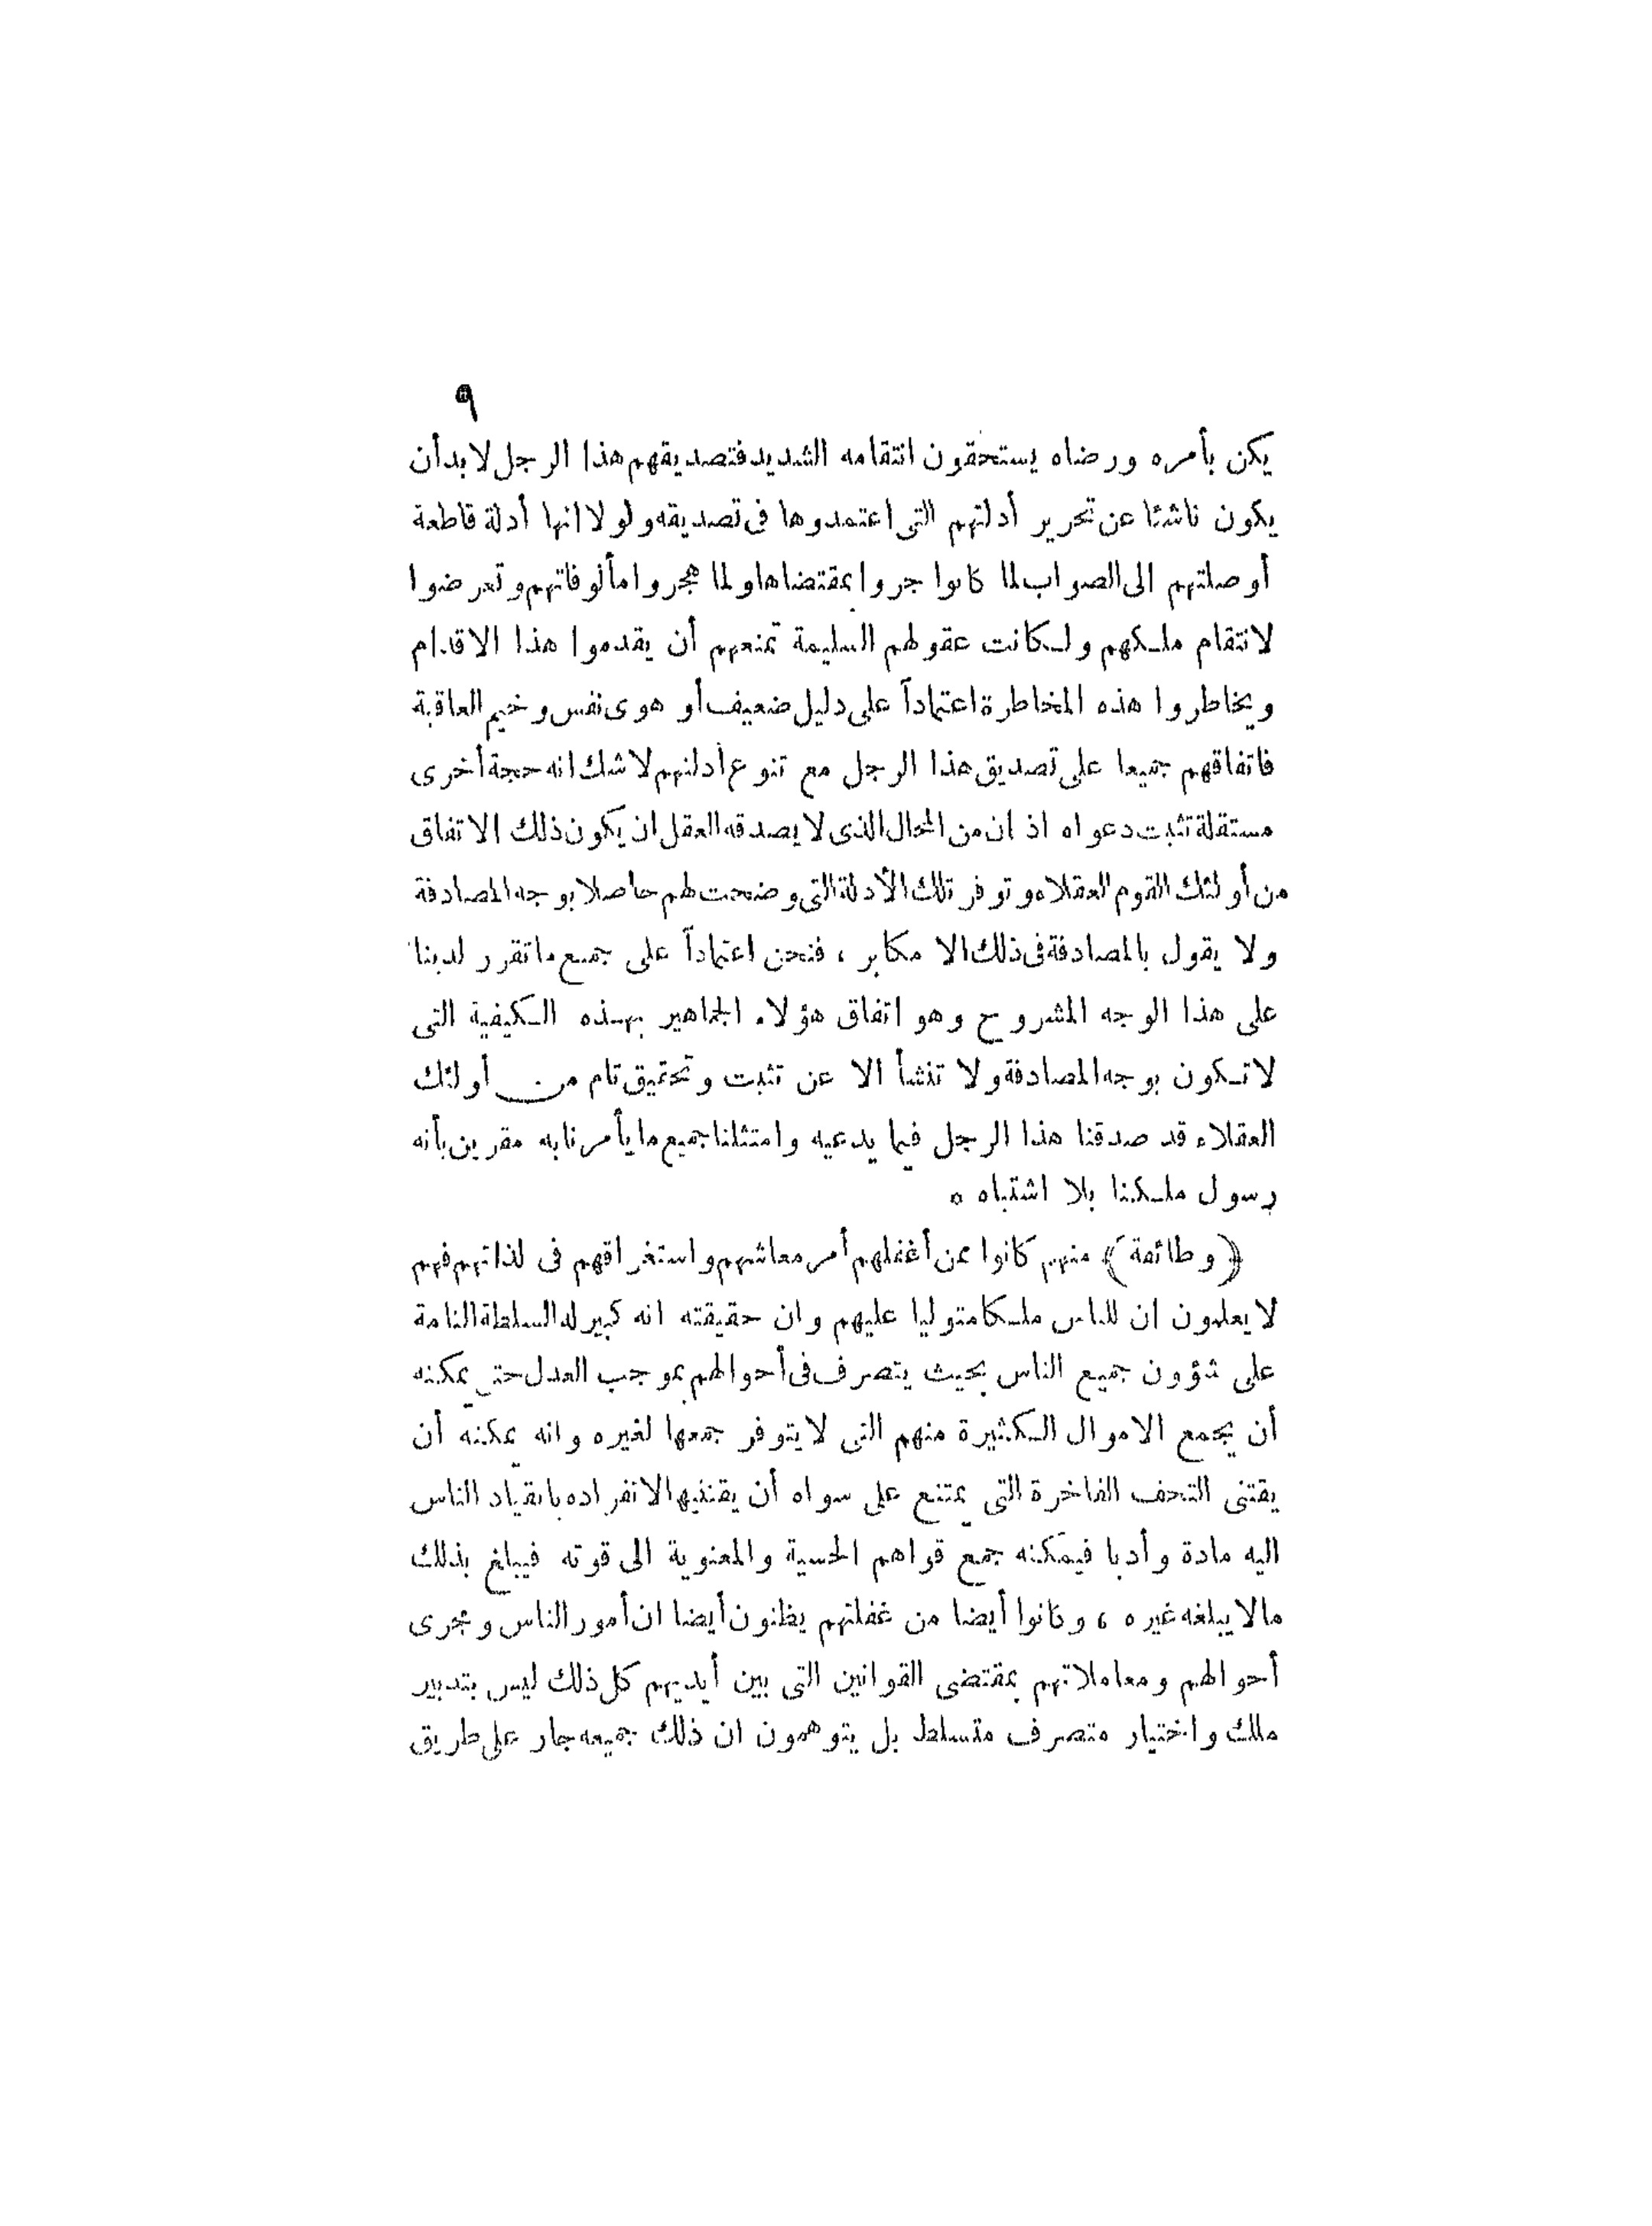 ٩
يكن بأمره ورضاه يستحقون انتقامه الشديد فتصديقهم هذا الرجل لابد أن
يكون ناشئا عن تحرير أدلتهم التى اعتمدوها فى تصديقه ولولا انها أدلة قاطعة
أوصلتهم الى الصواب لما كانوا جروا بمقتضاها ولما هجروا مألوفاتهم وتعرضوا
لانتقام ملكهم ولكانت عقولهم السليمة تمنعهم أن يقدموا هذا الاقدام
ويخاطروا هذه المخاطرة اعتماداً على دليل ضعيف أو هوى نفس وخيم العاقبة
فاتفاقهم جميعا على تصديق هذا الرجل مع تنوع أدلتهم لاشك انه حجة أخرى
مستقلة تثبت دعواه اذ ان من المحال الذى لا يصدقه العقل ان يكون ذلك الاتفاق
من أولئك القوم العقلاء وتوفر تلك الأدلة التى وضحت لهم حاصلا بوجه المصادفة
ولا يقول بالمصادفة فى ذلك الا مكابر ، فنحن اعتماداً على جميع ماتقرر لدينا
على هذا الوجه المشروح وهو اتفاق هؤلاء الجماهير بهذه الكيفية التى
لاتكون بوجه المصادفة ولا تنشأ الا عن تثبت وتحقيق تام من أولئك
العقلاء قد صدقنا هذا الرجل فيما يدعيه وامتثلنا جميع ما يأمرنا به مقرين بأنه
رسول ملكنا بلا اشتباه ٥
﴿ وطائفة ﴾ منهم كانوا ممن أغفلهم أمر معاشهم واستغراقهم فى لذاتهم فهم
لا يعلمون ان للناس ملكا متوليا عليهم وان حقيقته انه كبير له السلطة التامة
على شؤون جميع الناس بحيث يتصرف فى أحوالهم بموجب العدل حتى يمكنه
أن يجمع الاموال الكثيرة منهم التى لا يتوفر جمعها لغيره وانه يمكنه أن
يقتنى التحف الفاخرة التى يمتنع على سواه أن يقتنيها لانفراده بانقياد الناس
اليه مادة وأدبا فيمكنه جمع قواهم الحسية والمعنوية الى قوته فيبلغ بذلك
مالا يبلغه غيره ، وكانوا أيضا من غفلتهم يظنون أيضا ان أمور الناس ومجرى
أحوالهم ومعاملاتهم بمقتضى القوانين التى بين أيديهم كل ذلك ليس بتدبير
ملك واختيار متصرف متسلط بل يتوهمون ان ذلك جميعه جار على طريق